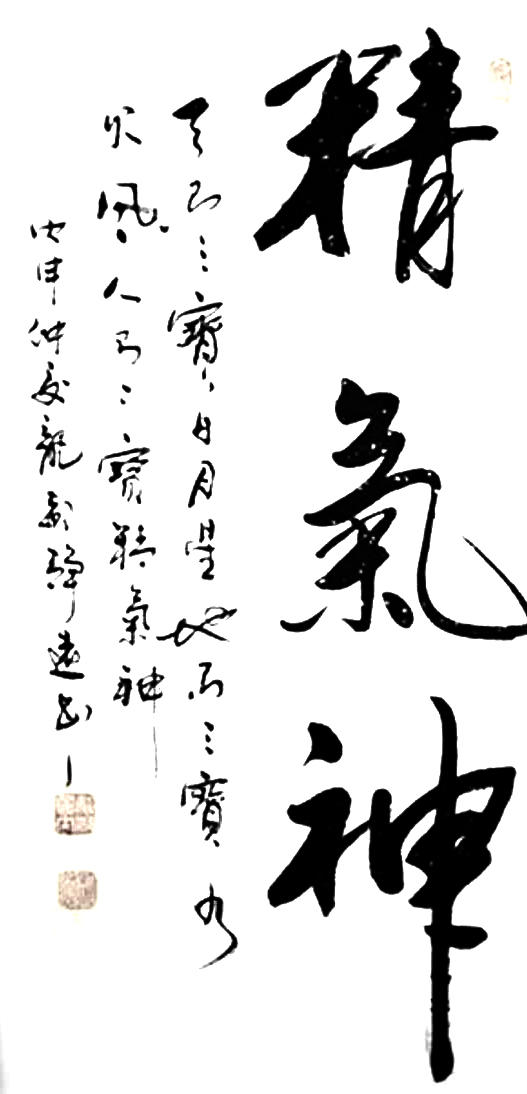 精氣神
天有三寶日月星地有三寶水
火風人有三寶精氣神
戊申仲夏龍遠書